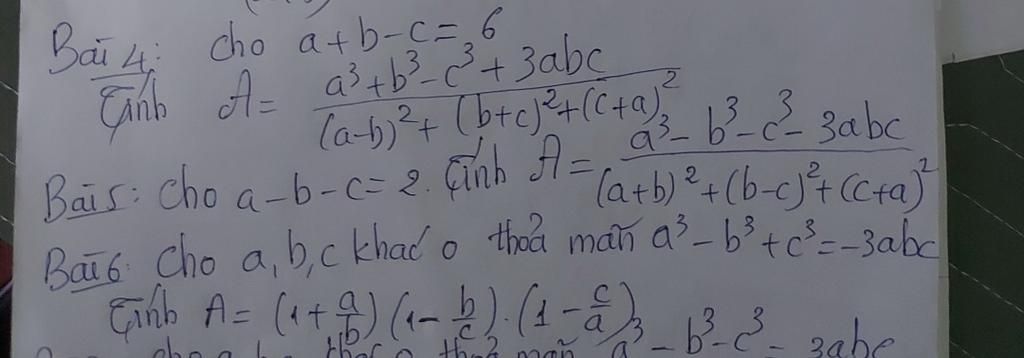 Bài 4: Cho a+b-c=6
Tính A = (a³+b³-c³+3abc)/((a-b)²+(b+c)²+(c+a)²)
Bài 5: Cho a-b-c=2. Tính A = (a³-b³-c³-3abc)/((a+b)²+(b-c)²+(c+a)²)
Bài 6: Cho a,b,c khác 0 thoả mãn a³-b³+c³=-3abc
Tính A = (1+a/b)(1-b/c).(1-c/a)
a³-b³-c³-3abc